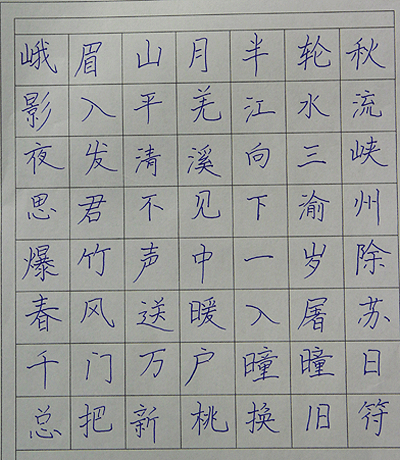 峨眉山月半轮秋
影入平羌江水流
夜发清溪向三峡
思君不见下渝州
爆竹声中一岁除
春风送暖入屠苏
千门万户曈曈日
总把新桃换旧符